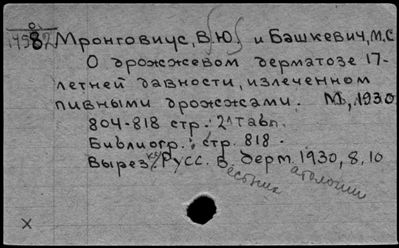 Мронговиус, В.Ю. и Башкевич, М.С.
О дрожжевом дерматозе 17-
летней давности, излеченном
пивными дрожжами. М., 1930
804-818 стр. 2 табл.
Библиогр.: стр. 818.
Вырез. Русс. Вестник дерматологии 1930, 8, 10
х